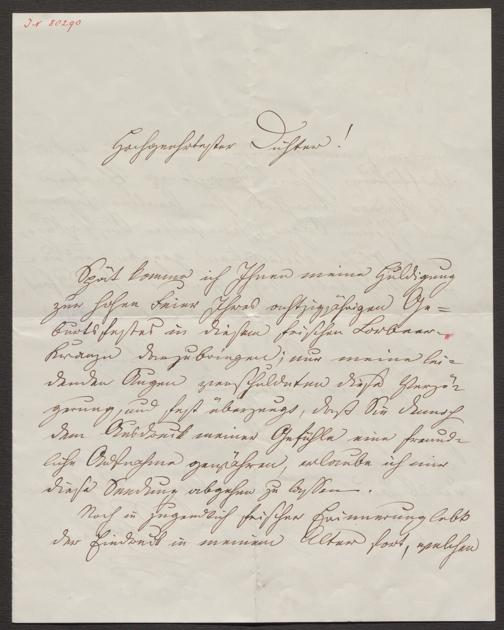 J.N 80290
Hochgeehrtester Dichter!
Spät komme ich Ihnen meine Huldigung
zur hohen Feier Ihres achtzigjährigen Ge=
burtsfestes in diesem frischen Lorbeer-
kranze darzubringen; nur meine lei=
denden Augen verschuldeten diese Verzö=
gerung, und fest überzeugt, daß Sie dennoch
dem Ausdruck meiner Gefühle eine freund=
liche Aufnahme gewähren, erlaube ich mir
diese Sendung abgehen zu lassen.
Noch in jugendlich frischer Erinnerung lebt
der Eindruck in meinem Alter fort, welchen